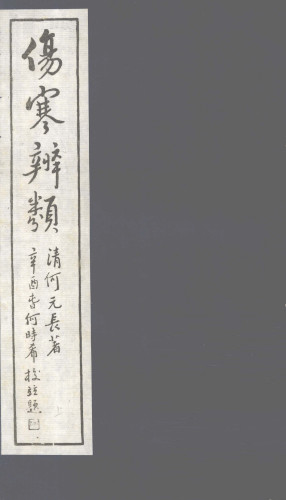 傷寒辨類
清何元長著
辛酉春何時希校註題